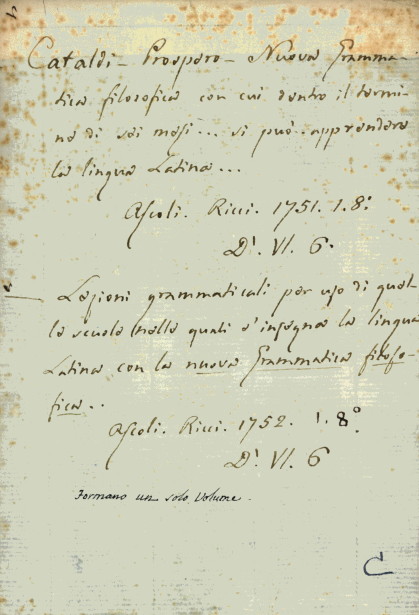 Cataldi - Prospero - Nuova Gramma-
tica filosofica con cui dentro il termi-
ne di sei mesi... si può apprendere
la lingua Latina...
Ascoli. Ricci. 1751. 1. 8.°
D'. VI. 6.
Lezioni grammaticali per uso di quel-
le scuole nelle quali s'insegna la lingua
Latina con la nuova Grammatica filoso-
fica..
Ascoli. Ricci. 1752. 1. 8.°
D'. VI. 6
Formano un solo Volume.
C